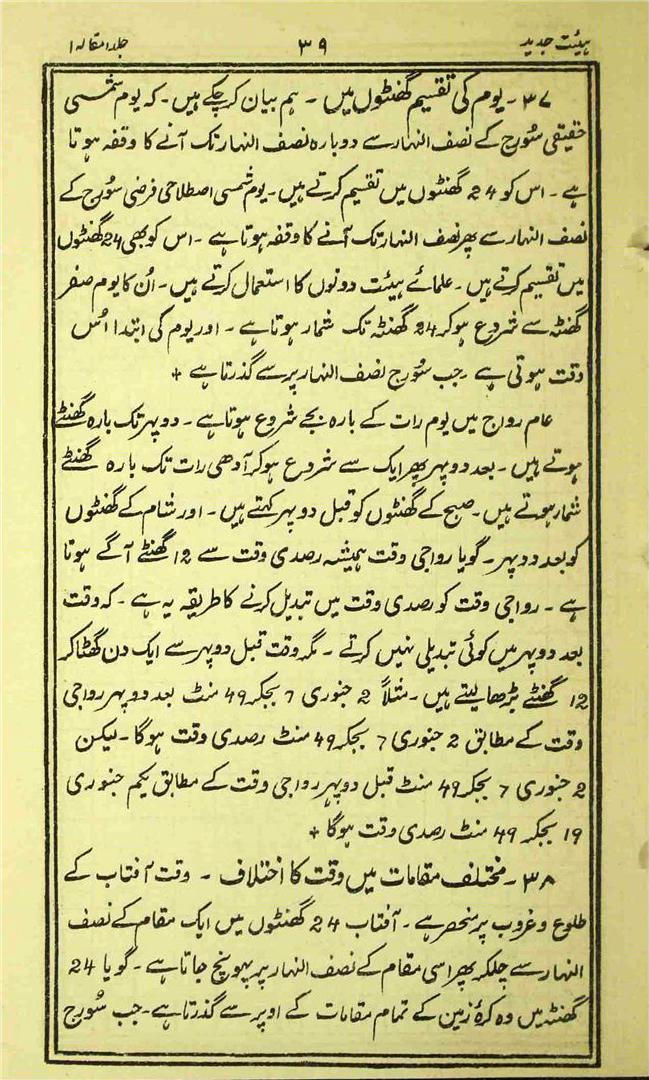 ہیئت جدید ۳۹ جلد ۱ مقالہ ۱
۳۷ ۔ یوم کی تقسیم گھنٹوں میں ۔ ہم بیان کر چکے ہیں ۔ کہ یوم شمسی
حقیقی سُورج کے نصف النہار سے دوبارہ نصف النہار تک آنے کا وقفہ ہوتا
ہے ۔ اس کو 24 گھنٹوں میں تقسیم کرتے ہیں ۔ یوم شمسی اصطلاحی فرضی سُورج کے
نصف النہار سے پھر نصف النہار تک آنے کا وقفہ ہوتا ہے ۔ اس کو بھی 24 گھنٹوں
میں تقسیم کرتے ہیں ۔ علمائے ہیئت دونوں کا استعمال کرتے ہیں ۔ اُن کا یوم صفر
گھنٹہ سے شروع ہو کر 24 گھنٹہ تک شمار ہوتا ہے ۔ اور یوم کی ابتدا اُس
وقت ہوتی ہے ۔ جب سُورج نصف النہار پر سے گذرتا ہے +
عام رواج میں یوم رات کے بارہ بجے شروع ہوتا ہے ۔ دوپہر تک بارہ گھنٹے
ہوتے ہیں ۔ بعد دوپہر پھر ایک سے شروع ہو کر آدھی رات تک بارہ گھنٹے
شمار ہوتے ہیں ۔ صبح کے گھنٹوں کو قبل دوپہر کہتے ہیں ۔ اور شام کے گھنٹوں
کو بعد دوپہر ۔ گویا رواجی وقت ہمیشہ رصدی وقت سے 12 گھنٹے آگے ہوتا
ہے ۔ رواجی وقت کو رصدی وقت میں تبدیل کرنے کا طریقہ یہ ہے ۔ کہ وقت
بعد دوپہر میں کوئی تبدیلی نہیں کرتے ۔ مگر وقت قبل دوپہر سے ایک دن گھٹا کر
12 گھنٹے بڑھا لیتے ہیں ۔ مثلاً 2 جنوری 7 بجکر 49 منٹ بعد دوپہر رواجی
وقت کے مطابق 2 جنوری 7 بجکر 49 منٹ رصدی وقت ہوگا ۔ لیکن
2 جنوری 7 بجکر 49 منٹ قبل دوپہر رواجی وقت کے مطابق یکم جنوری
19 بجکر 49 منٹ رصدی وقت ہوگا +
۳۸ ۔ مختلف مقامات میں وقت کا اختلاف ۔ وقت آفتاب کے
طلوع و غروب پر منحصر ہے ۔ آفتاب 24 گھنٹوں میں ایک مقام کے نصف
النہار سے چلکر پھر اسی مقام کے نصف النہار پر پہونچ جاتا ہے ۔ گویا 24
گھنٹہ میں وہ کرۂ زمین کے تمام مقامات کے اوپر سے گذرتا ہے ۔ جب سُورج